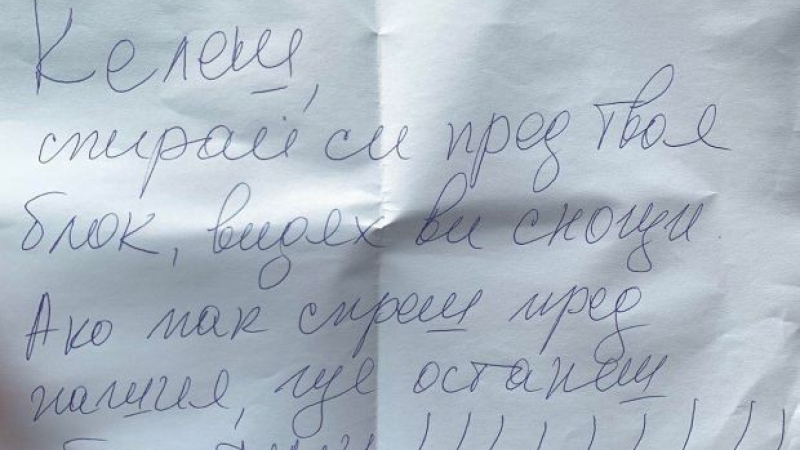 Келеш,
спирай си пред твоя
блок, видях ви снощи.
Ако пак спреш пред
нашия, ще останеш